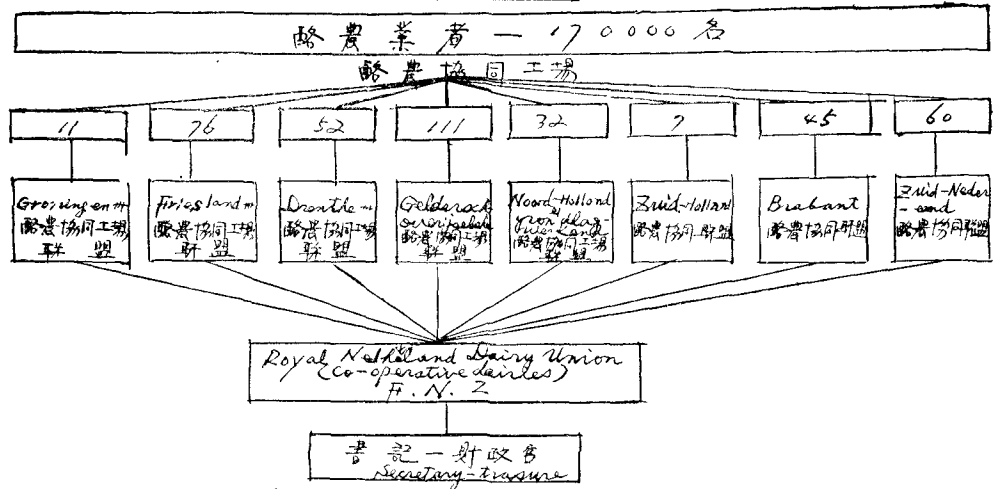 酪農業者 — 170000名
酪農協同工場
11
76
52
111
32
7
45
60
Groningen州
酪農協同工場
联盟
Friesland州
酪農協同工場
联盟
Drenthe州
酪農協同工場
联盟
酪農協同工場
联盟
Noord-Holland
酪農協同工場
联盟
Zuid-Holland
酪農協同联盟
Brabant
酪農協同联盟
Zuid-Neder
酪農協同联盟
Royal Netheland Dairy Union
(Co-operative dairies)
F.N.Z
書記一財政官
Secretary-trasure